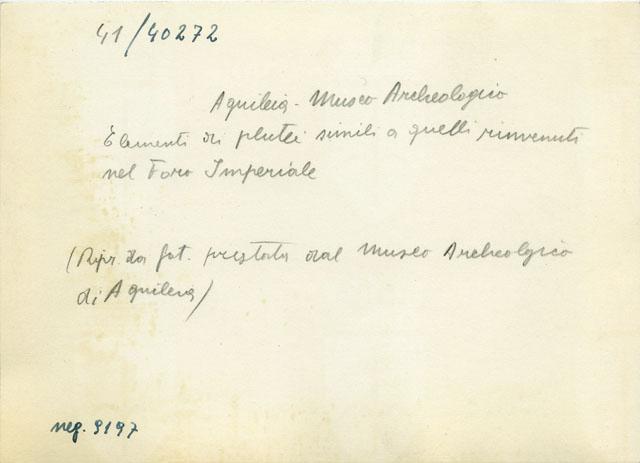 41/40272
Aquileia - Museo Archeologico
Elementi di plutei simili a quelli rinvenuti
nel Foro Imperiale
(Ripr. da fot. prestata dal Museo Archeologico
di Aquileia)
neg. 9197